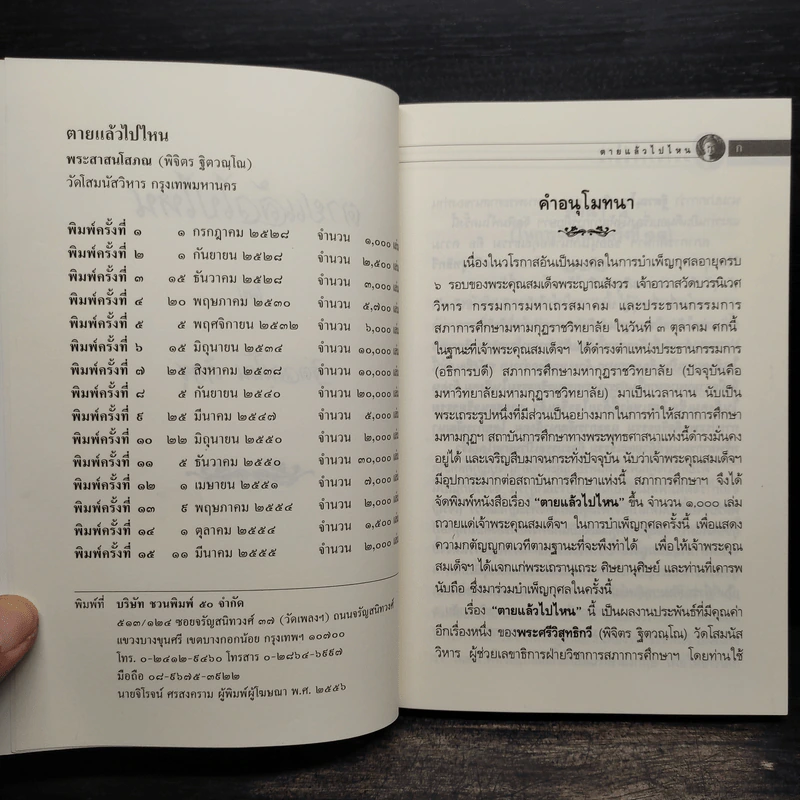 ตายแล้วไปไหน
พระสาสนโสภณ (พิจิตร ฐิตวณฺโณ)
วัดโสมนัสวิหาร กรุงเทพมหานคร
พิมพ์ครั้งที่ ๑ ๑ กรกฎาคม ๒๕๒๘ จำนวน ๑,๐๐๐ เล่ม
พิมพ์ครั้งที่ ๒ ๑ กันยายน ๒๕๒๘ จำนวน ๒,๕๐๐ เล่ม
พิมพ์ครั้งที่ ๓ ๑๕ ธันวาคม ๒๕๒๘ จำนวน ๓,๐๐๐ เล่ม
พิมพ์ครั้งที่ ๔ ๒๐ พฤษภาคม ๒๕๓๐ จำนวน ๕,๗๐๐ เล่ม
พิมพ์ครั้งที่ ๕ ๕ พฤศจิกายน ๒๕๓๒ จำนวน ๖,๐๐๐ เล่ม
พิมพ์ครั้งที่ ๖ ๑๕ มิถุนายน ๒๕๓๔ จำนวน ๑๐,๐๐๐ เล่ม
พิมพ์ครั้งที่ ๗ ๒๕ สิงหาคม ๒๕๓๘ จำนวน ๑๐,๐๐๐ เล่ม
พิมพ์ครั้งที่ ๘ ๕ กันยายน ๒๕๔๐ จำนวน ๒๐,๐๐๐ เล่ม
พิมพ์ครั้งที่ ๙ ๒๕ มีนาคม ๒๕๔๗ จำนวน ๕,๐๐๐ เล่ม
พิมพ์ครั้งที่ ๑๐ ๒๒ มิถุนายน ๒๕๕๐ จำนวน ๒,๐๐๐ เล่ม
พิมพ์ครั้งที่ ๑๑ ๕ ธันวาคม ๒๕๕๐ จำนวน ๓๐,๐๐๐ เล่ม
พิมพ์ครั้งที่ ๑๒ ๑ เมษายน ๒๕๕๑ จำนวน ๗,๐๐๐ เล่ม
พิมพ์ครั้งที่ ๑๓ ๙ พฤษภาคม ๒๕๕๔ จำนวน ๒,๐๐๐ เล่ม
พิมพ์ครั้งที่ ๑๔ ๑ ตุลาคม ๒๕๕๔ จำนวน ๑,๕๐๐ เล่ม
พิมพ์ครั้งที่ ๑๕ ๑๑ มีนาคม ๒๕๕๕ จำนวน ๒,๐๐๐ เล่ม
พิมพ์ที่ บริษัท ชวนพิมพ์ ๕๐ จำกัด
๕๑๓/๑๒๔ ซอยจรัญสนิทวงศ์ ๓๗ (วัดเพลงฯ) ถนนจรัญสนิทวงศ์
แขวงบางขุนศรี เขตบางกอกน้อย กรุงเทพฯ ๑๐๗๐๐
โทร. ๐-๒๔๑๒-๙๔๖๐ โทรสาร ๐-๒๘๖๔-๖๙๙๗
มือถือ ๐๘-๙๖๗๕-๓๙๒๒
นายจิโรจน์ ศรสงคราม ผู้พิมพ์ผู้โฆษณา พ.ศ. ๒๕๕๖
ตายแล้วไปไหน ก
คำอนุโมทนา
เนื่องในวโรกาสอันเป็นมงคลในการบำเพ็ญกุศลอายุครบ
๖ รอบของพระคุณสมเด็จพระญาณสังวร เจ้าอาวาสวัดบวรนิเวศ
วิหาร กรรมการมหาเถรสมาคม และประธานกรรมการ
สภาการศึกษามหามกุฏราชวิทยาลัย ในวันที่ ๓ ตุลาคม ศกนี้
ในฐานะที่เจ้าพระคุณสมเด็จฯ ได้ดำรงตำแหน่งประธานกรรมการ
(อธิการบดี) สภาการศึกษามหามกุฏราชวิทยาลัย (ปัจจุบันคือ
มหาวิทยาลัยมหามกุฏราชวิทยาลัย) มาเป็นเวลานาน นับเป็น
พระเถระรูปหนึ่งที่มีส่วนเป็นอย่างมากในการทำให้สภาการศึกษา
มหามกุฏฯ สถาบันการศึกษาทางพระพุทธศาสนาแห่งนี้ดำรงมั่นคง
อยู่ได้ และเจริญสืบมาจนกระทั่งปัจจุบัน นับว่าเจ้าพระคุณสมเด็จฯ
มีอุปการะมากต่อสถาบันการศึกษาแห่งนี้ สภาการศึกษาฯ จึงได้
จัดพิมพ์หนังสือเรื่อง “ตายแล้วไปไหน” ขึ้น จำนวน ๑,๐๐๐ เล่ม
ถวายแด่เจ้าพระคุณสมเด็จฯ ในการบำเพ็ญกุศลครั้งนี้ เพื่อแสดง
ความกตัญญูกตเวทีตามฐานะที่จะพึงทำได้ เพื่อให้เจ้าพระคุณ
สมเด็จฯ ได้แจกแก่พระเถรานุเถระ ศิษยานุศิษย์ และท่านที่เคารพ
นับถือ ซึ่งมาร่วมบำเพ็ญกุศลในครั้งนี้
เรื่อง “ตายแล้วไปไหน” นี้ เป็นผลงานประพันธ์ที่มีคุณค่า
อีกเรื่องหนึ่ง ของพระศรีวิสุทธิกวี (พิจิตร ฐิตวณฺโณ) วัดโสมนัส
วิหาร ผู้ช่วยเลขาธิการฝ่ายวิชาการสภาการศึกษาฯ โดยท่านใช้